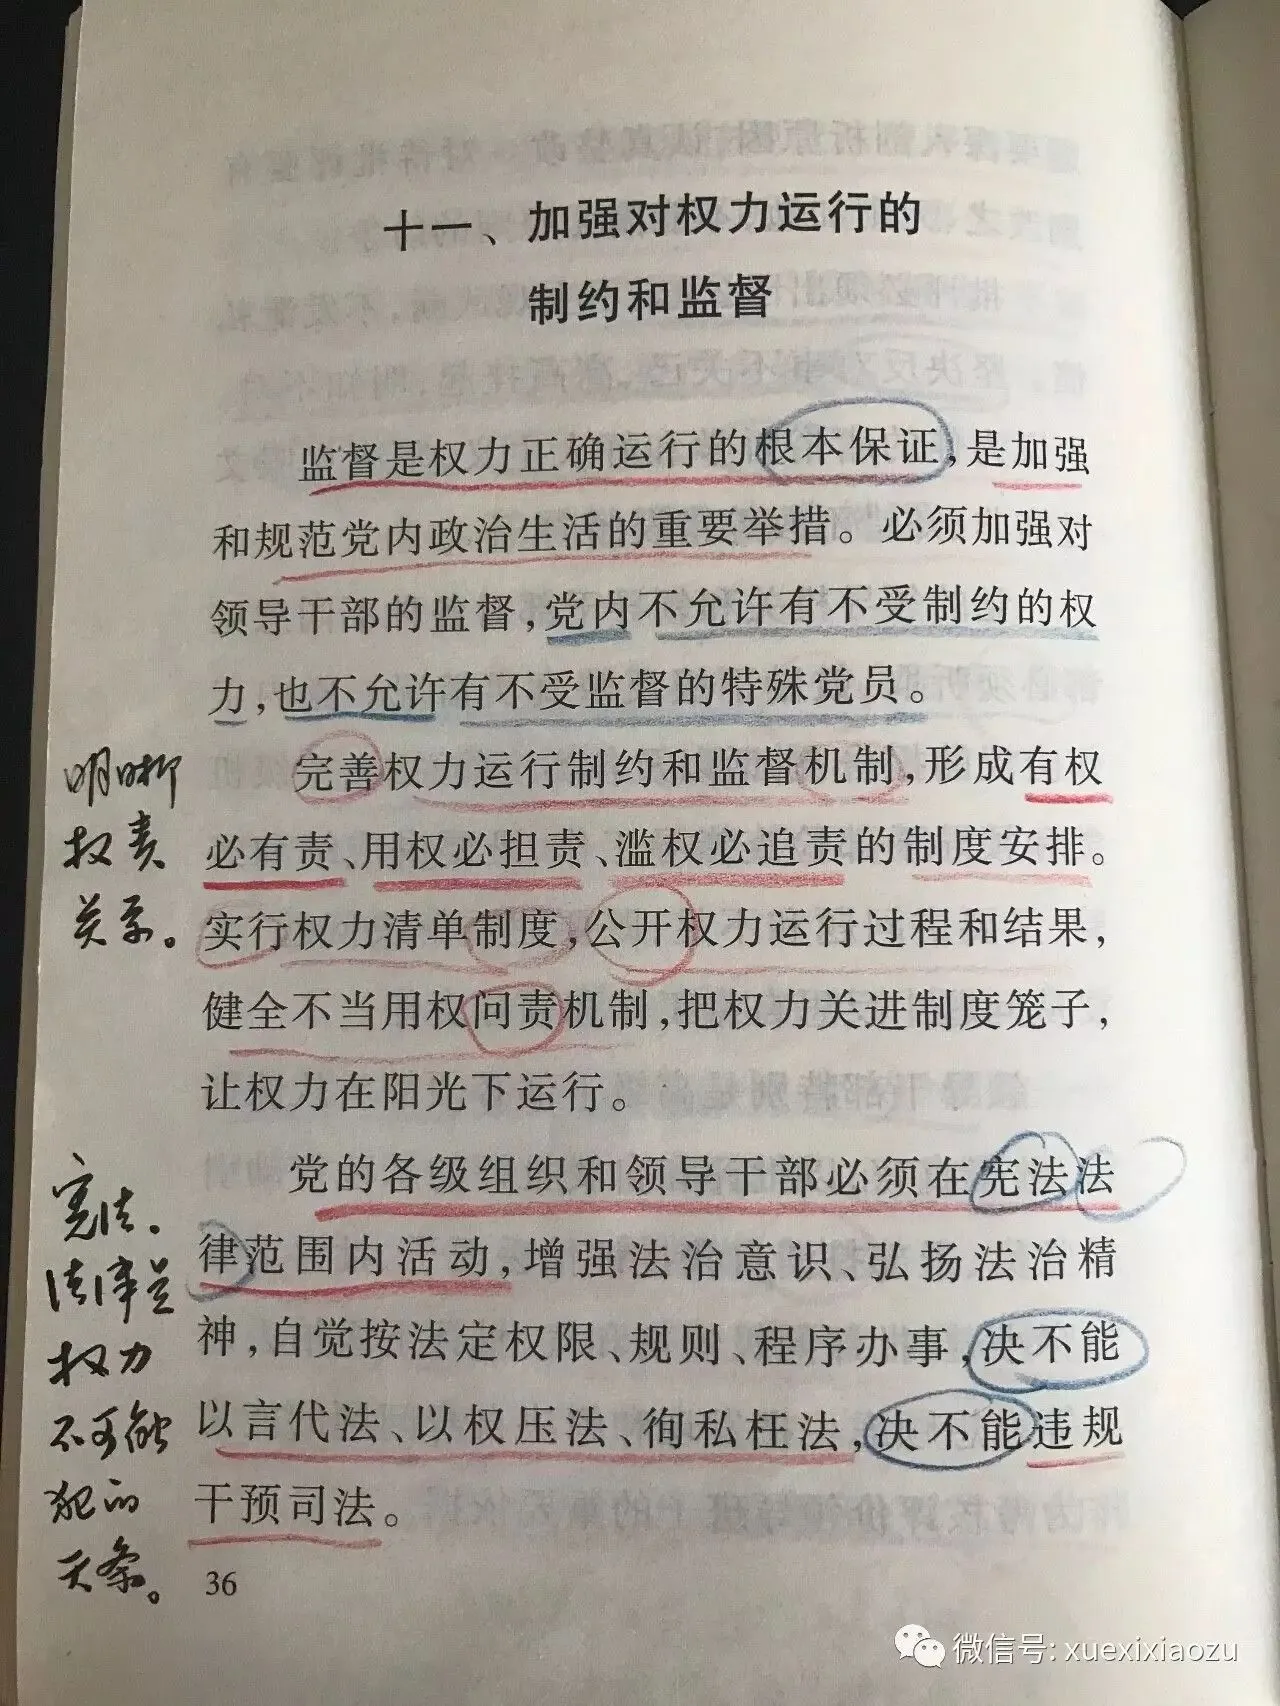 十一、加强对权力运行的
制约和监督
监督是权力正确运行的根本保证，是加强
和规范党内政治生活的重要举措。必须加强对
领导干部的监督，党内不允许有不受制约的权
力，也不允许有不受监督的特殊党员。
完善权力运行制约和监督机制，形成有权
必有责、用权必担责、滥权必追责的制度安排。
实行权力清单制度，公开权力运行过程和结果，
健全不当用权问责机制，把权力关进制度笼子，
让权力在阳光下运行。
党的各级组织和领导干部必须在宪法法
律范围内活动，增强法治意识、弘扬法治精
神，自觉按法定权限、规则、程序办事，决不能
以言代法、以权压法、徇私枉法，决不能违规
干预司法。
明晰
权责
关系。
宪法、
法律是
权力
不可触
犯的
天条。
36
微信号: xuexixiaozu